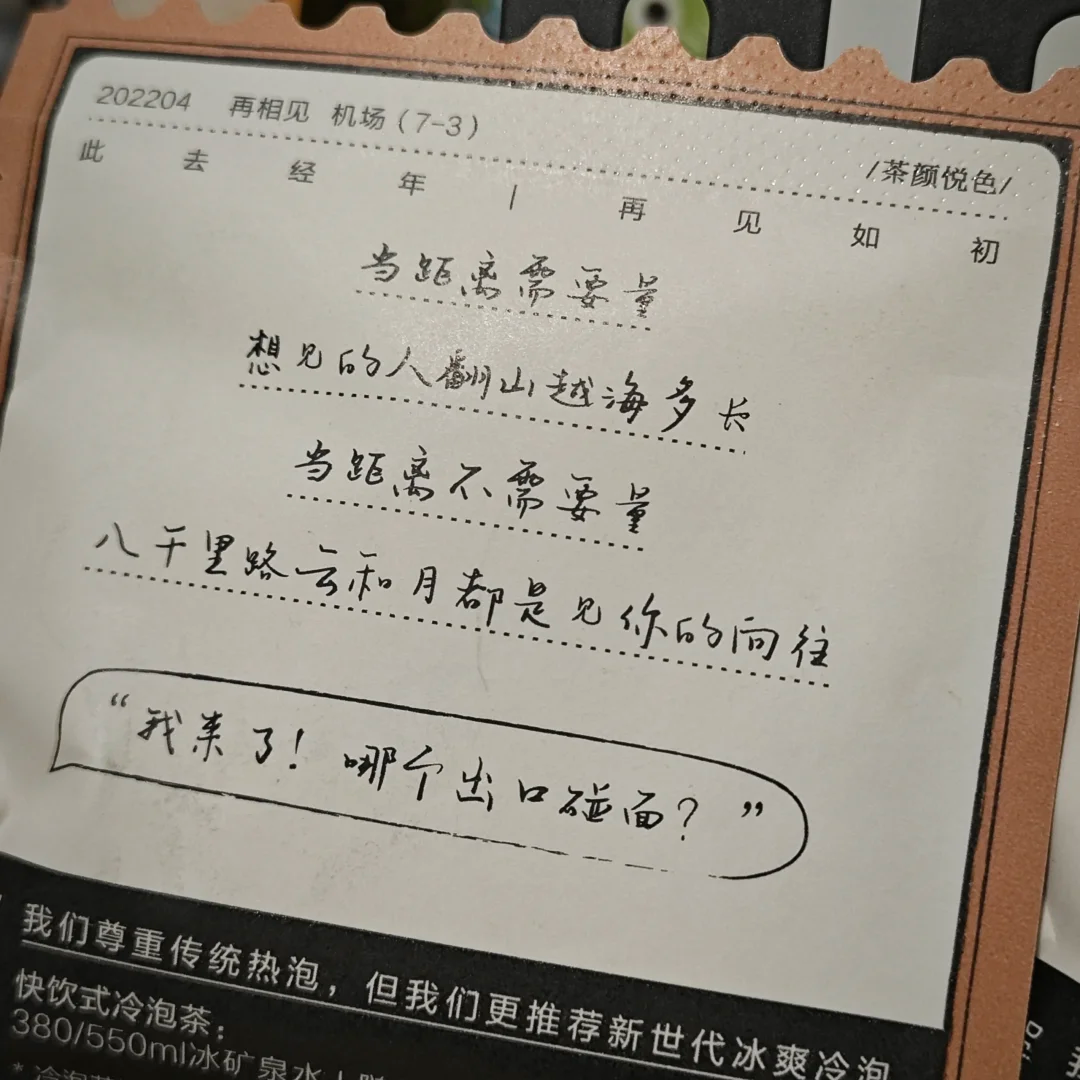 202204 再相见 机场（7-3）
/茶颜悦色/
此去经年｜再见如初
当距离需要量
想见的人翻山越海多长
当距离不需要量
八千里路云和月都是见你的向往
“我来了！哪个出口碰面？”
我们尊重传统热泡，但我们更推荐新世代冰爽冷泡
快饮式冷泡茶：
380/550ml冰矿泉水